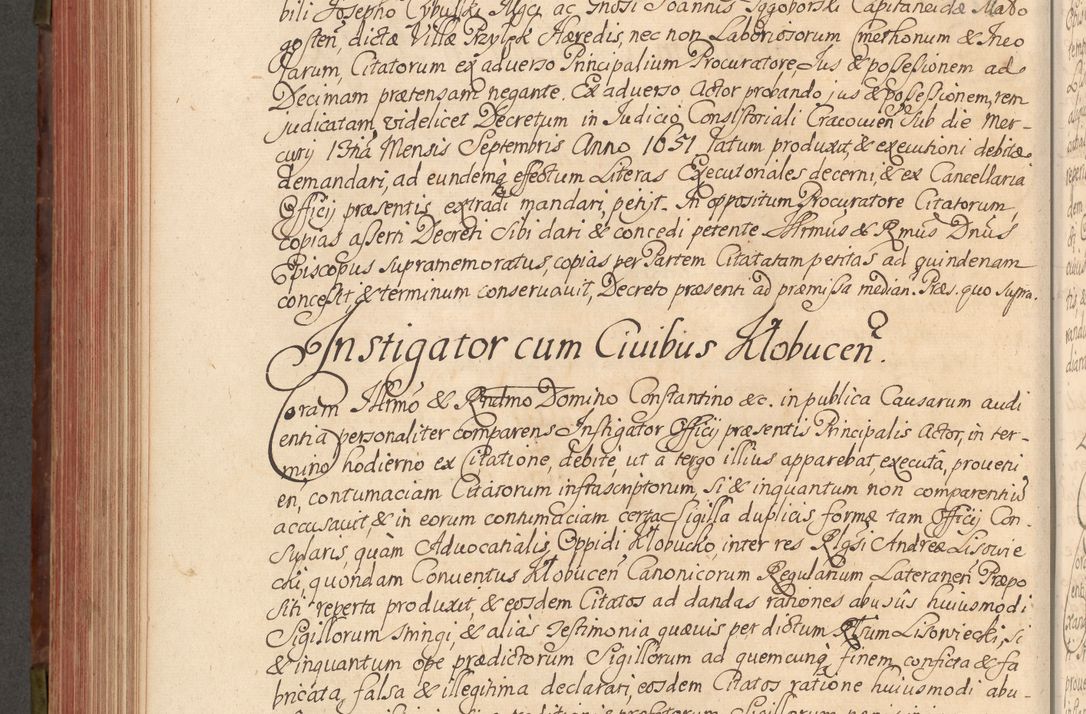 bili Josepho Cybulski Mgci ac Gnosi Joannis Jgoborski Capitaneidæ Mabo
gosten, dictæ Villæ Przyłęk Hæredis, nec non Laboriosorum Cmethonum & Ineo
larum, Citatorum ex adverso Principalium Procuratore, Jus & possessionem ad
Decimam prætensam negante. Ex adverso Actor probando jus & possessionem, rem
judicatam, videlicet Decretum in Judicio Consistoriali Cracovien Sub die Mer-
curij 13tia Mensis Septembris Anno 1651 latum produxit, & executioni debitæ
demandari, ad eundemq effectum Literas Executoriales decerni, & ex Cancellaria
Officij præsentis extradi mandari, petijt. In oppositum Procuratore Citatorum,
copias asserti Decreti sibi dari & concedi petente Illrmus & Rmus Dnus
Episcopus supramemoratus, copias per Partem Citatatam petitas ad quindenam
concessit, & terminum conservavit, Decreto præsenti ad præmissa median. Præs. quo supra.
Instigator cum Civibus Kłobucen.
Coram Illrmo & Rndmo Domino Constantino &c. in publica Causarum audi
entia personaliter comparens Instigator Officij præsentis Principalis Actor, in ter-
mino hodierno ex Citatione, debite, ut a tergo illius apparebat, executa, proveni
en, contumaciam Citatorum infrascriptorum, si & inquantum non comparentiũ
accusavit, & in eorum contumaciam certa Sigilla duplicis formæ tam Officij Con-
sularis, quàm Advocatialis, Oppidi Kłobucko, inter res Rlgsi Andreæ Lisowie
cki, quondam Conventus Kłobucen Canonicorum Regularium Lateranen Præpo
siti reperta produxit, & eosdem Citatos ad dandas rationes abusûs huiusmodi
Sigillorum stringi, & aliàs testimonia quævis per dictum Rlsum Lisowiecki, si
& inquantum ope prædictorum Sigillorum ad quemcunq finem conficta & fa
bricata, falsa & illegitima declarari, eosdem Citatos ratione huiusmodi abu-